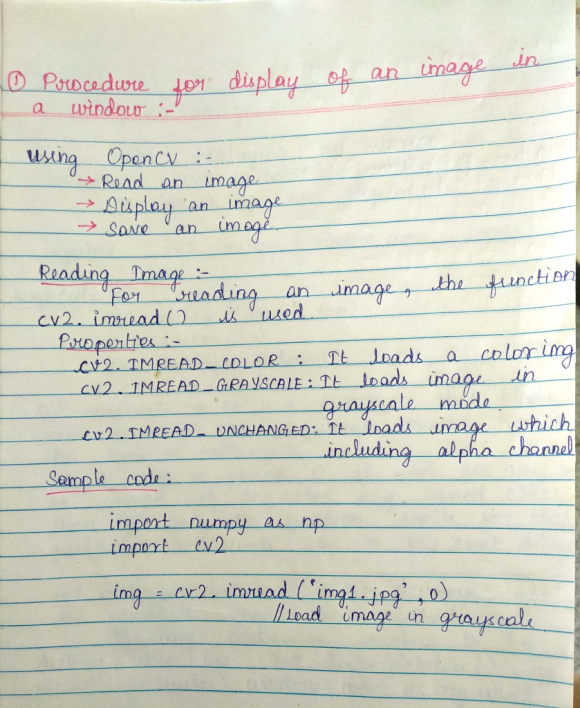 ① Procedure for display of an image in
a window :-
using OpenCV :-
→ Read an image
→ Display an image
→ Save an image.
Reading Image :-
For reading an image, the function
cv2.imread() is used.
Properties :-
cv2.IMREAD_COLOR : It loads a color img
cv2.IMREAD_GRAYSCALE : It loads image in
grayscale mode.
cv2.IMREAD_UNCHANGED: It loads image which
including alpha channel
Sample code :
import numpy as np
import cv2
img = cv2.imread('img1.jpg', 0)
//Load image in grayscale